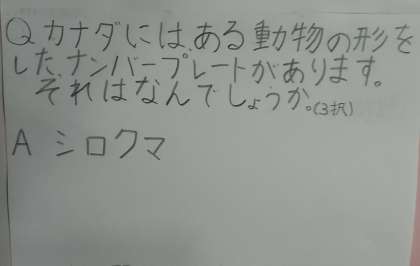 Q カナダには、ある動物の形を
した、ナンバープレートがあります。
それはなんでしょうか。(3択)
A シロクマ